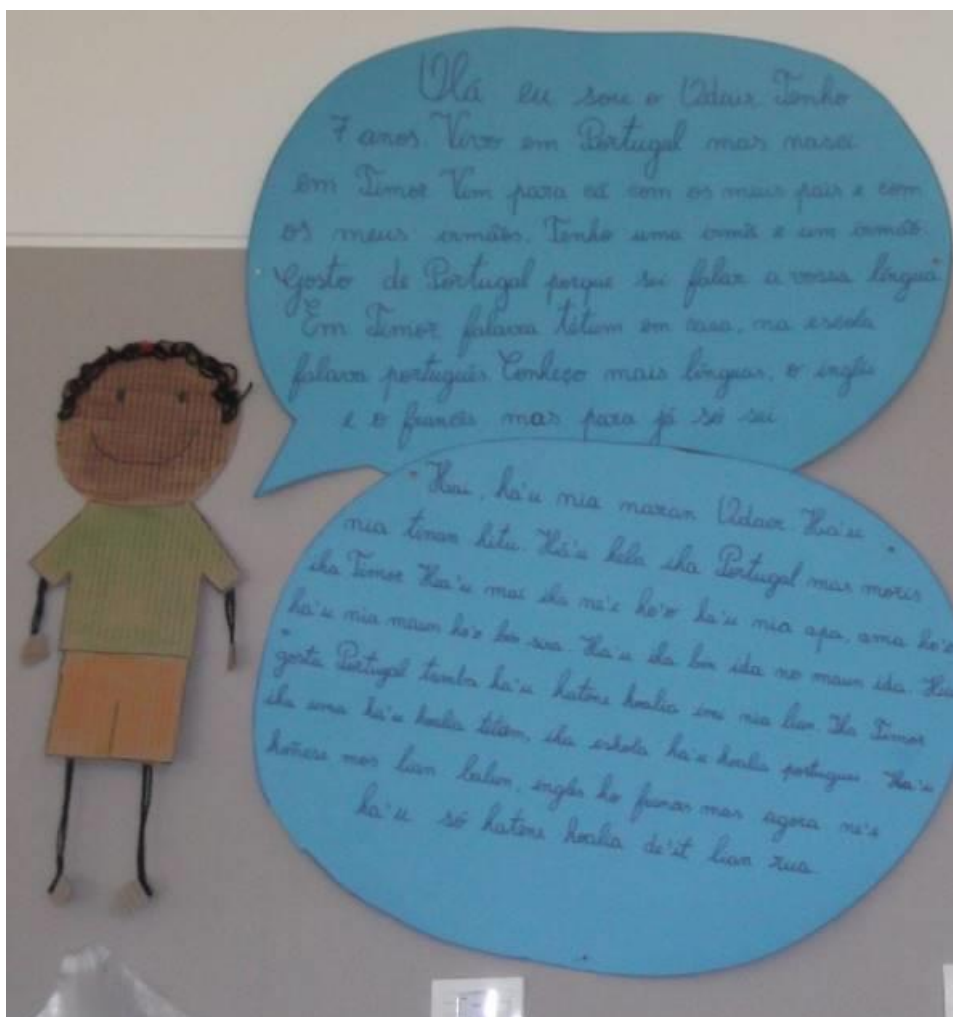 Olá eu sou o Odair Tenho
7 anos. Vivo em Portugal mas nasci
em Timor Vim para cá com os meus pais e com
os meus irmãos. Tenho uma irmã e um irmão.
Gosto de Portugal porque sei falar a vossa língua
Em Timor falava tétum em casa, na escola
falava português. Conheço mais línguas, o inglês
e o francês mas para já só sei
Hai, ha'u nia naran Odair. Ha'u
nia tinan hitu. Ha'u hela iha Portugal mas moris
iha Timor Ha'u mai iha ne'e ho'o ha'u nia apa, ama ho'o
ha'u nia maun ho'o bin sira. Ha'u iha bin ida no maun ida. Ha'u
gosta Portugal tamba ha'u hatene koalia imi nia lian. Iha Timor
iha uma ha'u koalia tétum, iha eskola ha'u koalia portugues. Ha'u
koñese mos lian balun, inglês ho frances mas agora ne'e
ha'u só hatene koalia de'it lian rua